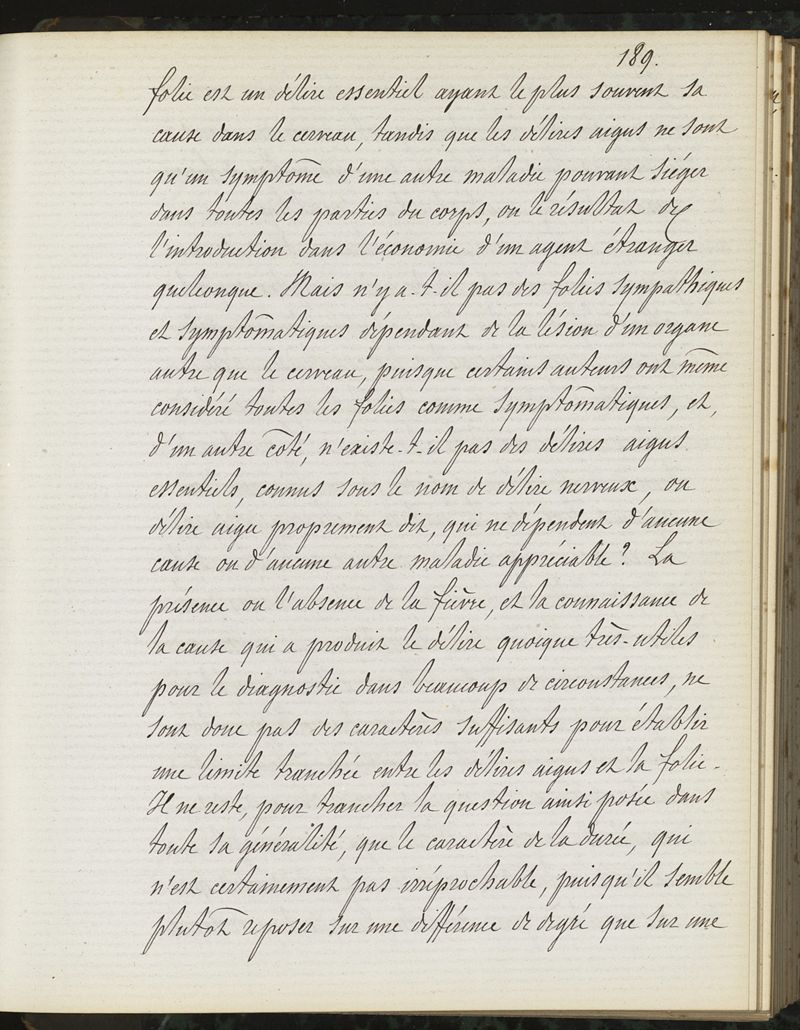 189.
folie est un délire essentiel ayant le plus souvent sa
cause dans le cerveau, tandis que les délires aigus ne sont
qu'un symptôme d'une autre maladie pouvant siéger
dans toutes les parties du corps, ou le résultat de
l'introduction dans l'économie d'un agent étranger
quelconque. Mais n'y a-t-il pas des folies sympathiques
et symptômatiques dépendant de la lésion d'un organe
autre que le cerveau, puisque certains auteurs ont même
considéré toutes les folies comme symptômatiques, et,
d'un autre côté, n'existe-t-il pas des délires aigus
essentiels, connus sous le nom de délire nerveux, ou
délire aigu proprement dit, qui ne dépendent d'aucune
cause ou d'aucune autre maladie appréciable? La
présence ou l'absence de la fièvre, et la connaissance de
la cause qui a produit le délire quoique très-utiles
pour le diagnostic dans beaucoup de circonstances, ne
sont donc pas des caractères suffisants pour établir
une limite tranchée entre les délires aigus et la folie.
Il ne reste, pour trancher la question ainsi posée dans
toute sa généralité, que le caractère de la durée, qui
n'est certainement pas irréprochable, puisqu'il semble
plutôt reposer sur une différence de degré que sur une